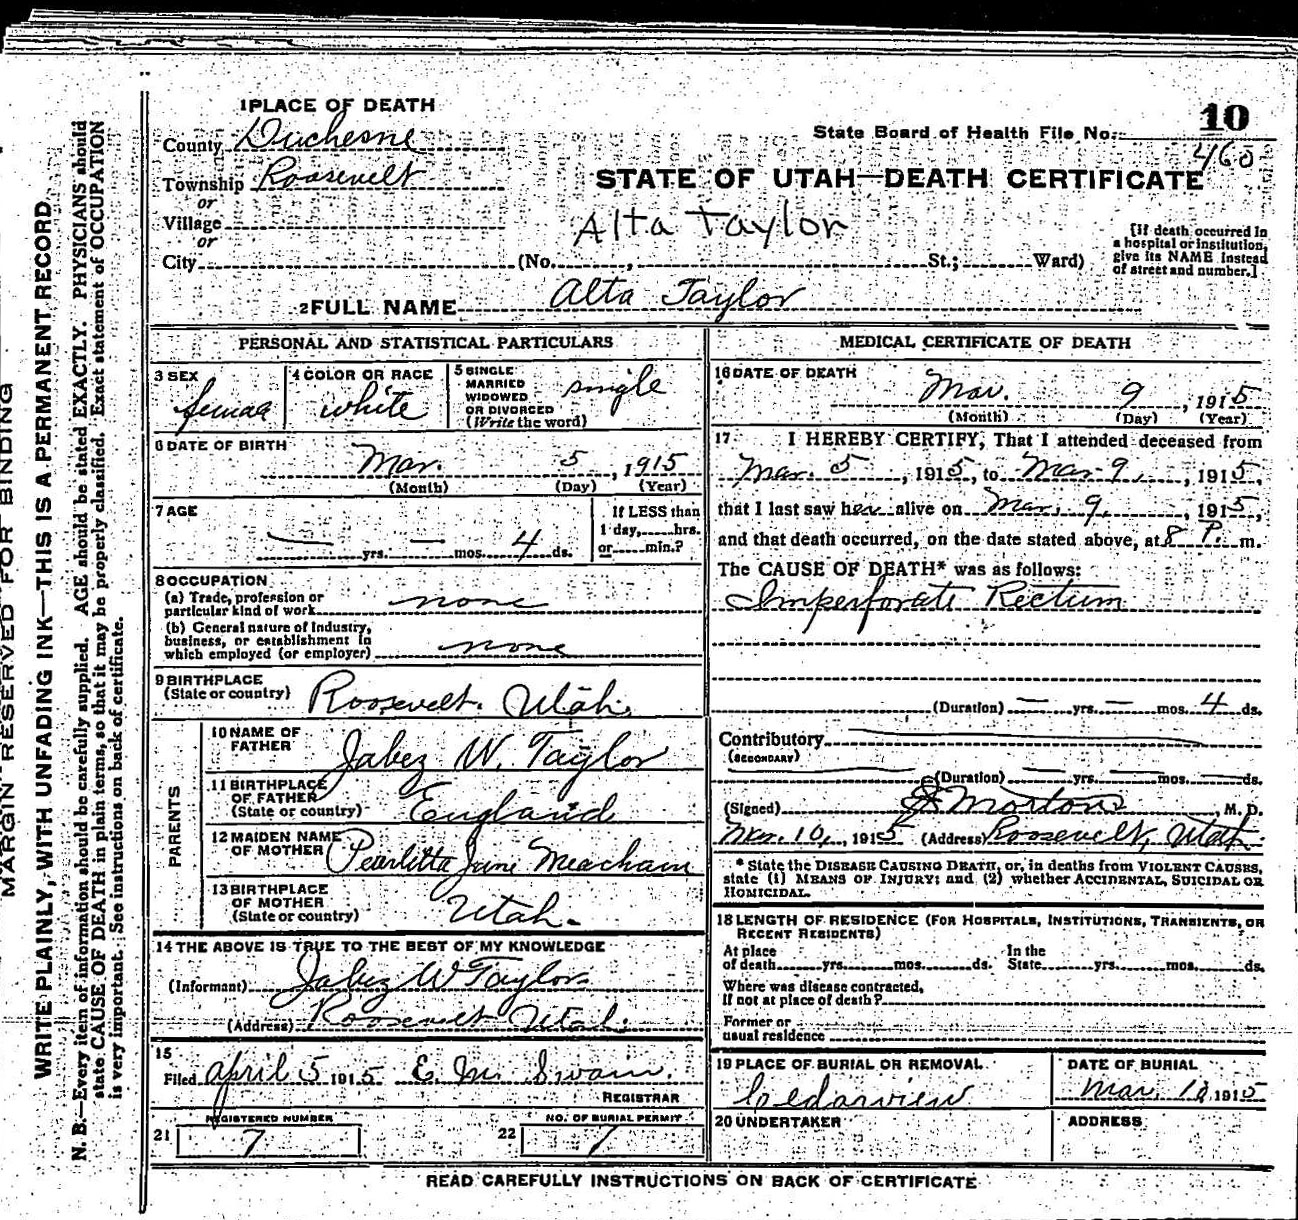 MARGIN RESERVED FOR BINDING
WRITE PLAINLY, WITH UNFADING INK—THIS IS A PERMANENT RECORD
N. B.—Every item of information should be carefully supplied. AGE should be stated EXACTLY. PHYSICIANS should
state CAUSE OF DEATH in plain terms, so that it may be properly classified. Exact statement of OCCUPATION
is very important. See instructions on back of certificate.
1 PLACE OF DEATH
County Duchesne
Township Roosevelt
or
Village
or
City (No. , St.; Ward)
State Board of Health File No. 10
460
STATE OF UTAH—DEATH CERTIFICATE
Alta Taylor
[If death occurred in
a hospital or institution,
give its NAME instead
of street and number.]
2 FULL NAME Alta Taylor
PERSONAL AND STATISTICAL PARTICULARS
3 SEX
female
4 COLOR OR RACE
white
5 SINGLE
MARRIED
WIDOWED
OR DIVORCED
(Write the word)
single
6 DATE OF BIRTH
Mar. 5, 1915
(Month) (Day) (Year)
7 AGE
— yrs. — mos. 4 ds.
If LESS than
1 day, hrs.
or min.?
8 OCCUPATION
(a) Trade, profession or
particular kind of work none
(b) General nature of Industry,
business, or establishment in
which employed (or employer) none
9 BIRTHPLACE
(State or country) Roosevelt. Utah.
PARENTS
10 NAME OF
FATHER Jabez W. Taylor
11 BIRTHPLACE
OF FATHER
(State or country) England
12 MAIDEN NAME
OF MOTHER Pearlitta Jane Meacham
13 BIRTHPLACE
OF MOTHER
(State or country) Utah.
14 THE ABOVE IS TRUE TO THE BEST OF MY KNOWLEDGE
(Informant) Jabez W Taylor
(Address) Roosevelt Utah.
15
Filed April 5 1915 E. M. Swain.
REGISTRAR
REGISTERED NUMBER
21 7
NO. OF BURIAL PERMIT
22 1
MEDICAL CERTIFICATE OF DEATH
16 DATE OF DEATH
Mar. 9, 1915
(Month) (Day) (Year)
17 I HEREBY CERTIFY, That I attended deceased from
Mar. 5, 1915, to Mar 9, 1915,
that I last saw her alive on Mar. 9, 1915,
and that death occurred, on the date stated above, at 8 P. m.
The CAUSE OF DEATH* was as follows:
Imperforate Rectum
(Duration) — yrs. — mos. 4 ds.
Contributory
(SECONDARY)
(Duration) — yrs. — mos. — ds.
(Signed) Morton M. D.
Mar. 10, 1915 (Address) Roosevelt, Utah.
* State the DISEASE CAUSING DEATH, or, in deaths from VIOLENT CAUSES,
state (1) MEANS OF INJURY; and (2) whether ACCIDENTAL, SUICIDAL OR
HOMICIDAL.
18 LENGTH OF RESIDENCE (FOR HOSPITALS, INSTITUTIONS, TRANSIENTS, OR
RECENT RESIDENTS)
At place
of death yrs. mos. ds.
In the
State yrs. mos. ds.
Where was disease contracted,
if not at place of death?
Former or
usual residence
19 PLACE OF BURIAL OR REMOVAL
Cedarview
DATE OF BURIAL
Mar. 10 1915
20 UNDERTAKER
ADDRESS
READ CAREFULLY INSTRUCTIONS ON BACK OF CERTIFICATE